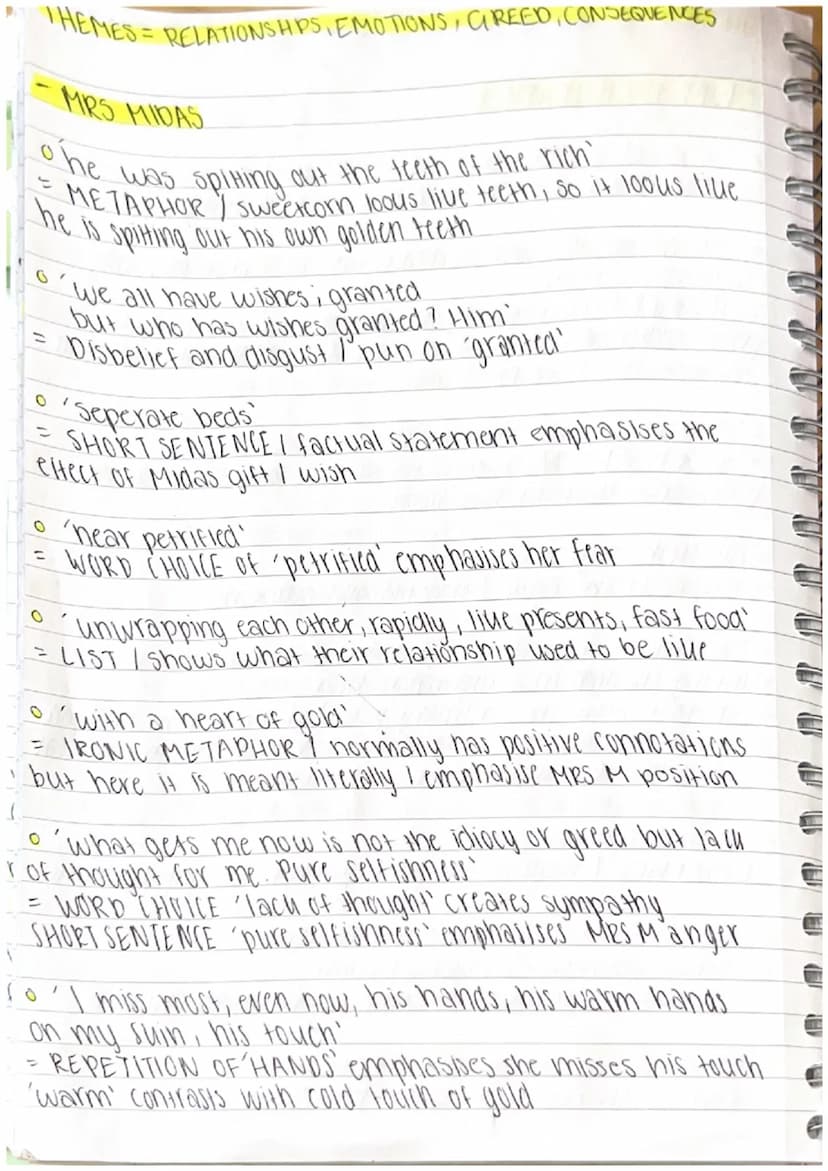 THEMES = RELATIONSHIPS, EMOTIONS, GREED, CONSEQUENCES
- MRS MIDAS
'he was spitting out the teeth of the rich'
= METAPHOR / sweetcorn looks like teeth, so it looks like
he is spitting out his own golden teeth
'we all have wishes; granted
but who has wishes granted? Him'
= Disbelief and disgust / pun on 'granted'
'seperate beds'
= SHORT SENTENCE / factual statement emphasises the
effect of Midas gift / wish
'near petrified'
= WORD CHOICE of 'petrified' emphasises her fear
'unwrapping each other, rapidly, like presents, fast food'
= LIST / shows what their relationship used to be like
'with a heart of gold'
= IRONIC METAPHOR / normally has positive connotations
but here it is meant literally / emphasise MRS M position
'what gets me now is not the idiocy or greed but lack
of thought for me. Pure selfishness'
= WORD CHOICE 'lack of thought' creates sympathy
SHORT SENTENCE 'pure selfishness' emphasises MRS M anger
'I miss most, even now, his hands, his warm hands
on my skin, his touch'
= REPETITION OF 'HANDS' emphasises she misses his touch
'warm' contrasts with cold touch of gold